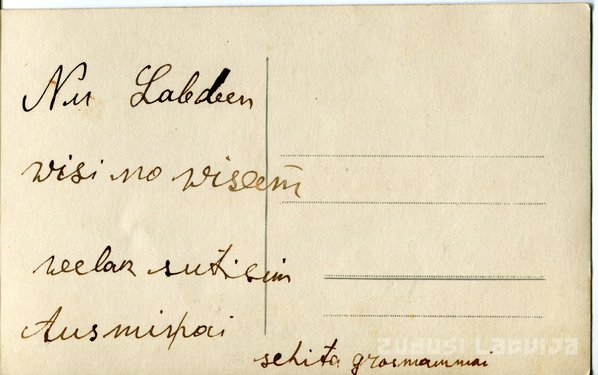 Nu Labdeen
wisi no wiseem̄
weelak sutisim
Ausmixai
schita grosmammai
ZUDUSI LATVIJA